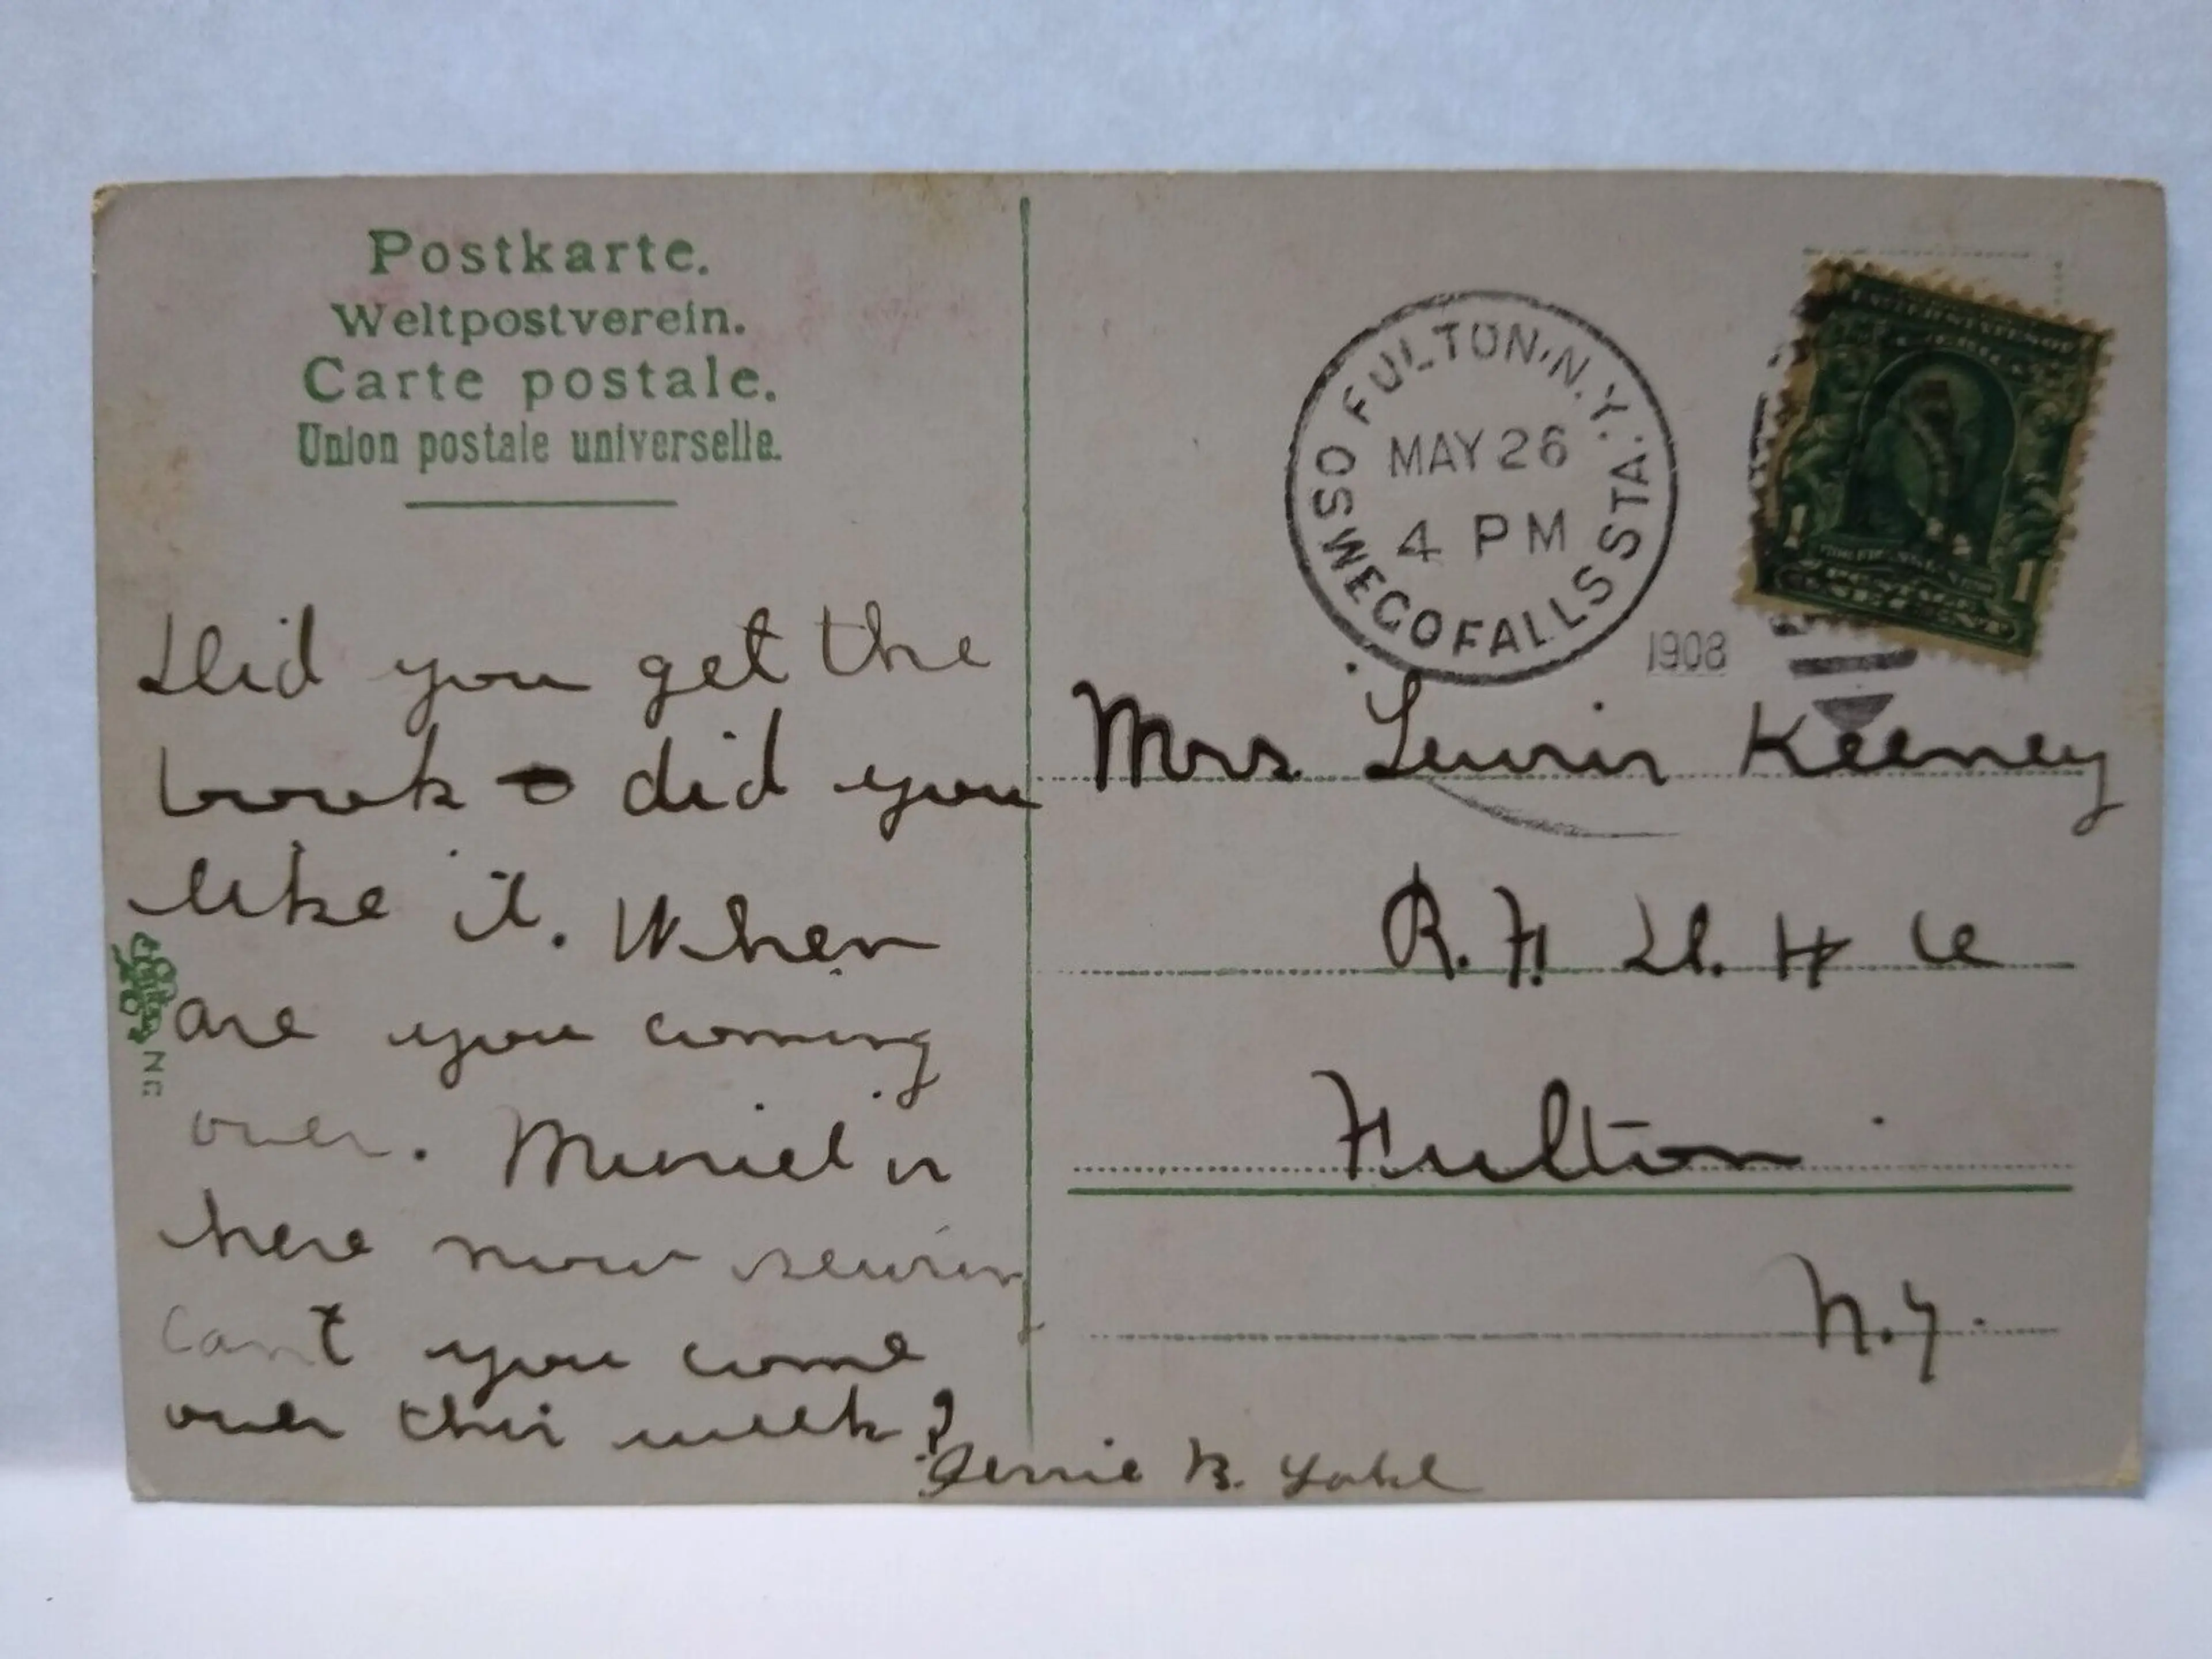 Postkarte.
Weltpostverein.
Carte postale.
Union postale universelle.
FULTON, N.Y.
MAY 26
4 PM
OSWEGO FALLS STA.
1908
Did you get the
book did you
like it. When
are you coming
over. Muriel is
here now sewing
Can't you come
over this week?
Jennie B.
Mrs Lewis Keeney
R. F. D. #
Fulton
N.Y.